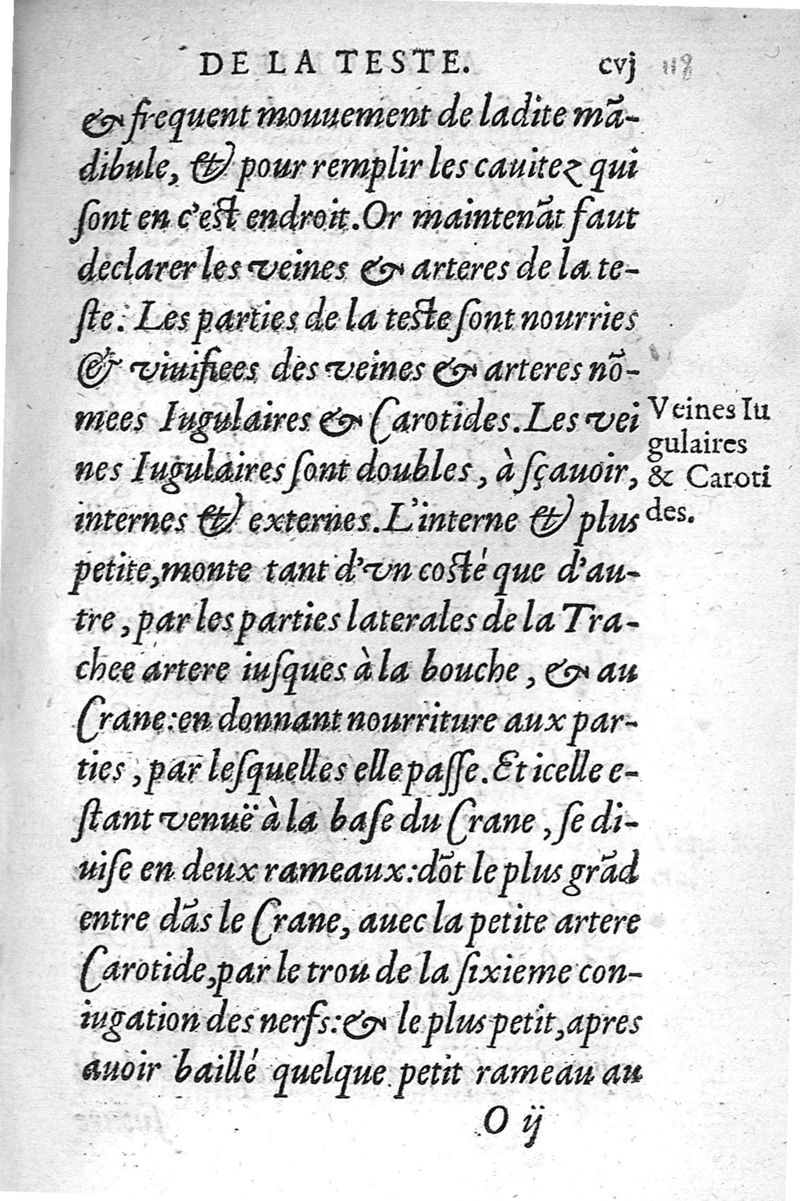 DE LA TESTE. cvj 118
& frequent mouuement de ladite mã-
dibule, & pour remplir les cauitez qui
ſont en c'eſt endroit. Or maintenãt faut
declarer les veines & arteres de la te-
ſte. Les parties de la teſte ſont nourries
& viuifiees des veines & arteres nõ-
mees Iugulaires & Carotides. Les vei
nes Iugulaires ſont doubles, à ſçauoir,
internes & externes. L'interne & plus
petite, monte tant d'vn coſté que d'au-
tre, par les parties laterales de la Tra-
chee artere iuſques à la bouche, & au
Crane: en donnant nourriture aux par-
ties, par leſquelles elle paſſe. Et icelle e-
ſtant venuë à la baſe du Crane, ſe di-
uiſe en deux rameaux: dõt le plus grãd
entre dãs le Crane, auec la petite artere
Carotide, par le trou de la ſixieme con-
iugation des nerfs: & le plus petit, apres
auoir baillé quelque petit rameau au
O ij
Veines Iu
gulaires
& Caroti
des.